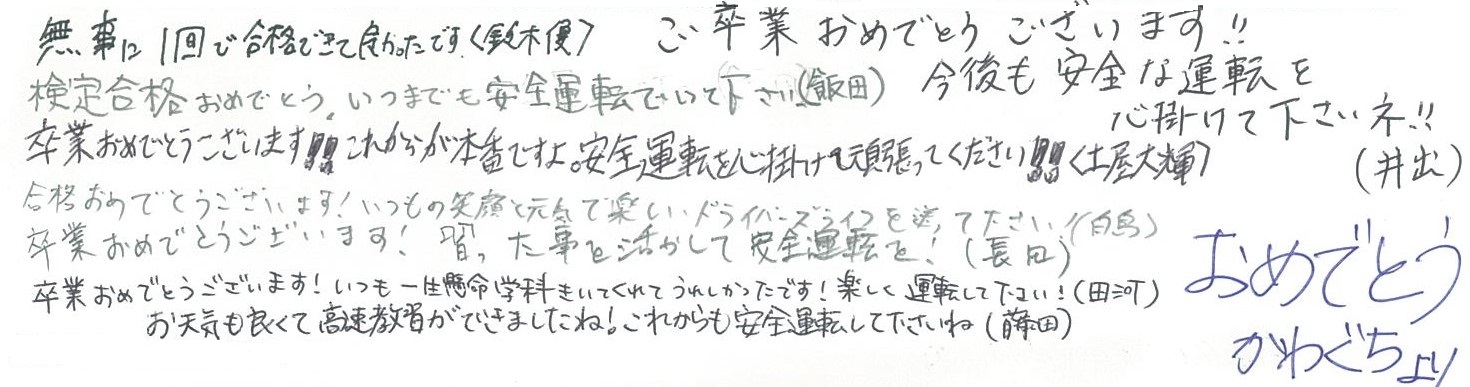 無事に1回で合格できて良かったです〈鈴木優〉
ご卒業おめでとうございます!!
今後も安全な運転を
心掛けて下さいネ!!
(井出)
検定合格おめでとう。いつまでも安全運転でいて下さい(飯田)
卒業おめでとうございます!!これからが本番ですよ。安全運転を心掛けて頑張ってください!!〈土屋大輝〉
合格おめでとうございます!いつもの笑顔と元気で楽しいドライバーズライフを送って下さい!(白鳥)
卒業おめでとうございます!習った事を活かして安全運転を!(長田)
卒業おめでとうございます!いつも一生懸命学科きいてくれてうれしかったです!楽しく運転して下さい!(田河)
お天気も良くて高速教習ができましたね!これからも安全運転して下さいね(藤田)
おめでとう
かわぐちより